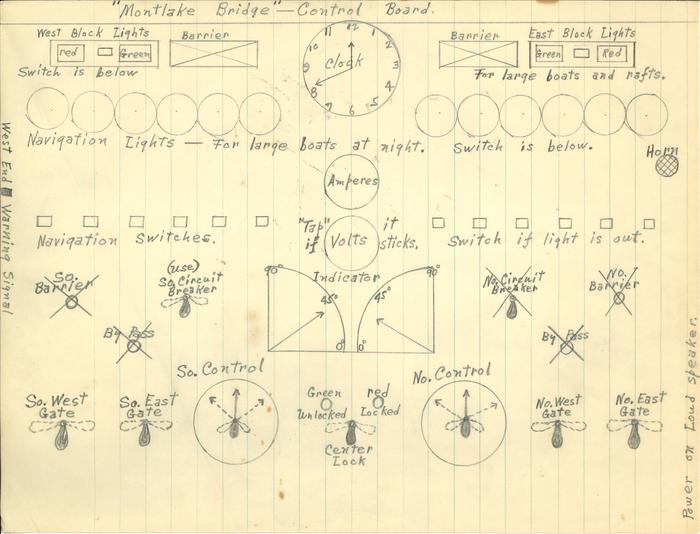 "Montlake Bridge" — Control Board.
West Block Lights
red
Green
Barrier
Switch is below
12
1
2
3
4
5
6
7
8
9
10
11
Clock
Barrier
East Block Lights
Green
Red
For large boats and rafts.
Navigation Lights — For large boats at night. Switch is below.
Horn
Amperes
West End Warning Signal
"Tap" if
Volts
it sticks.
Navigation Switches.
Switch if light is out.
So. Barrier
(use)
So. Circuit Breaker
Indicator
90°
45°
0°
90°
45°
0°
No. Circuit Breaker
No. Barrier
By Pass
By Pass
So. Control
No. Control
So. West Gate
So. East Gate
Green Unlocked
red Locked
Center Lock
No. West Gate
No. East Gate
Power on Loud speaker.